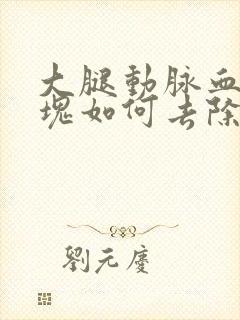 大腿動脉血
塊如何去除
劉元慶